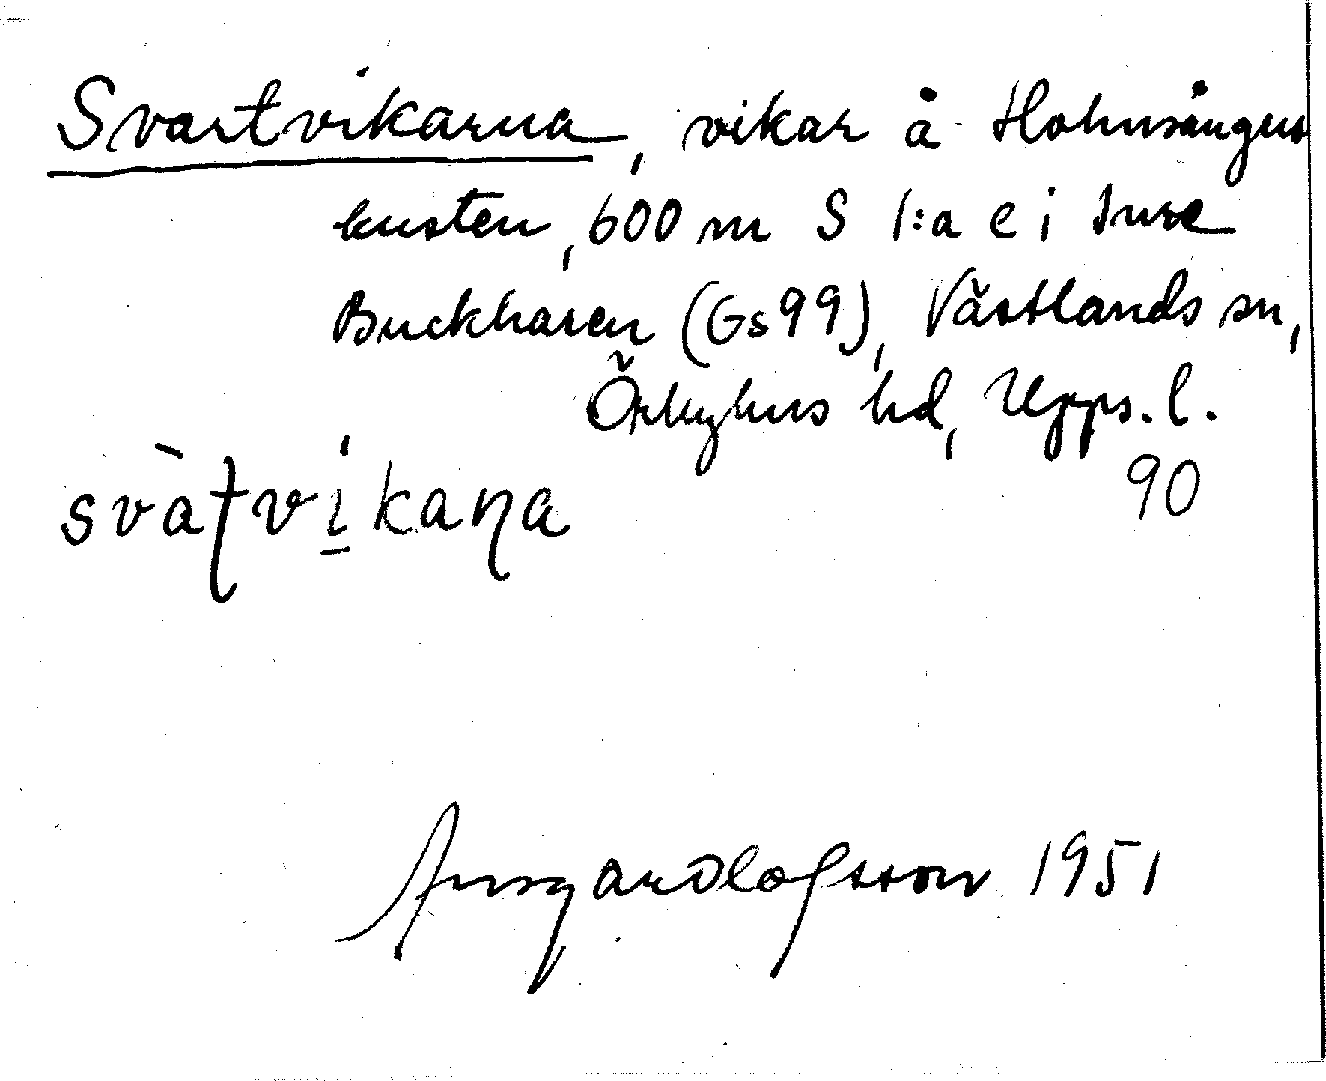 Svartvikarna, vikar å Hohnsängus
kusten, 600 m S 1:a e i Inre
Buckharen (Gs99), Västlands sn,
Örbyhus hd, Upps. l.
90
svàʈvíkaɳa
Ansgar Olofsson 1951